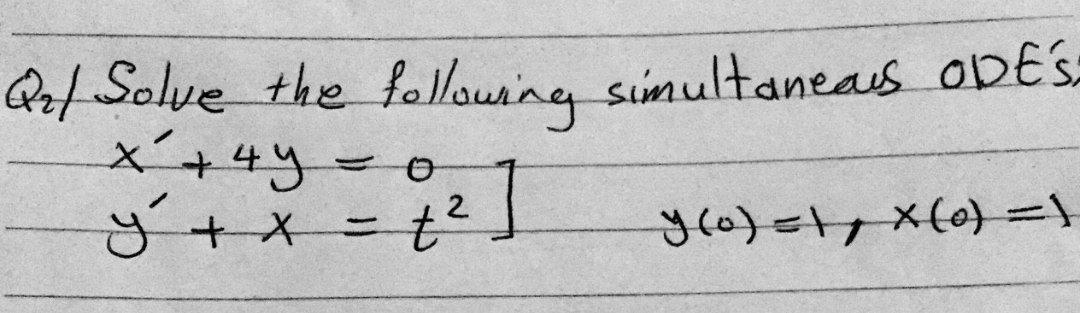 Q2/ Solve the following simultaneous ODE's,
x′ + 4y = 0
y′ + x = t² ] y(0) = 1, x(0) = 1